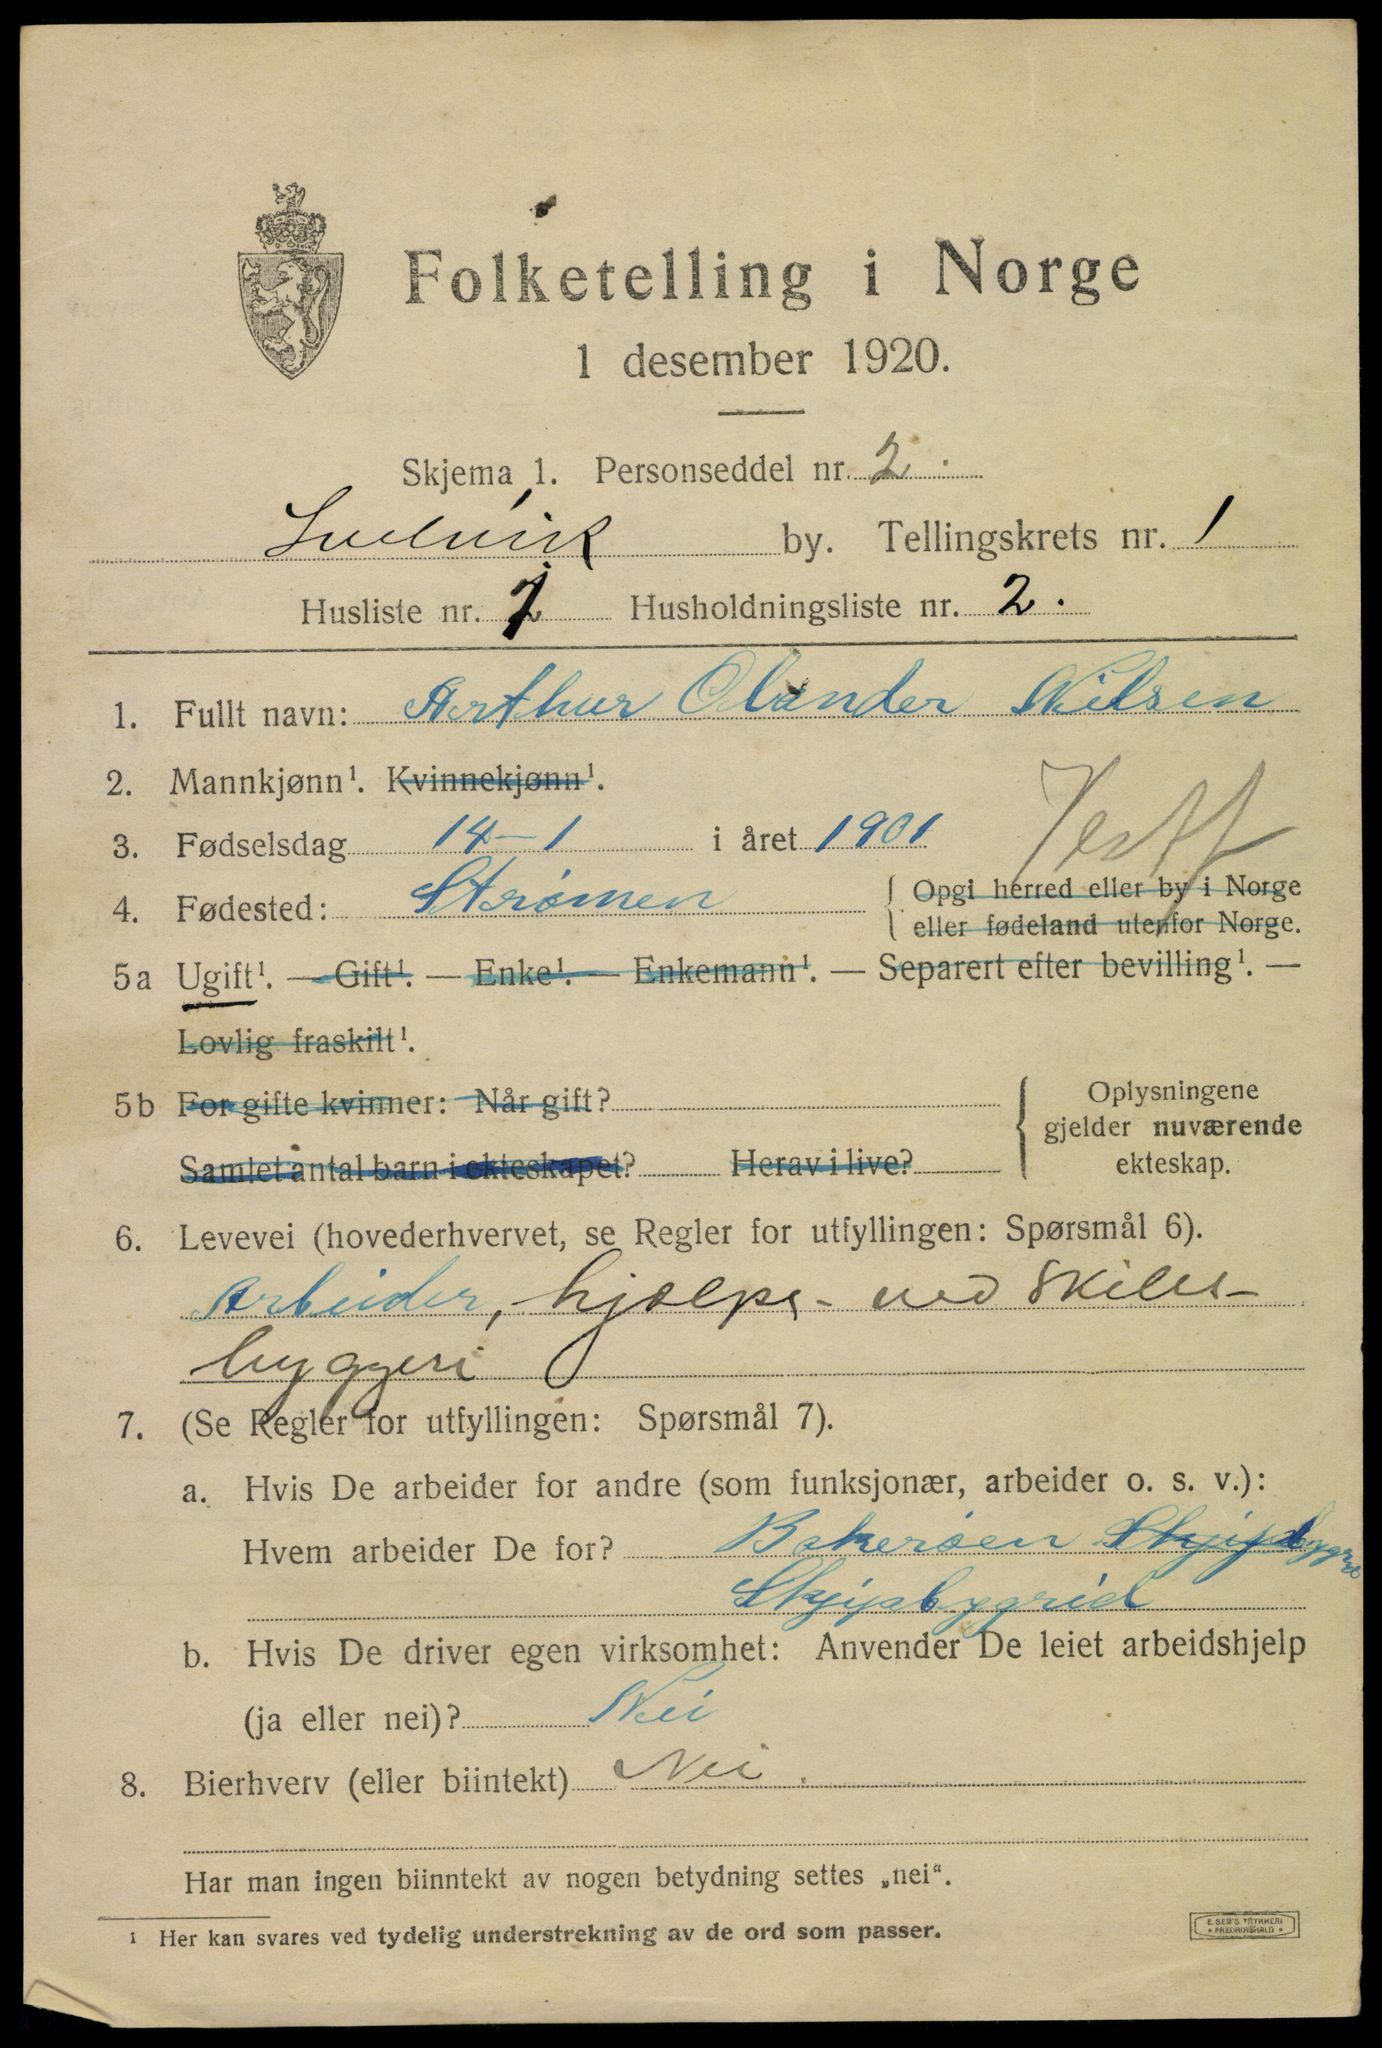 Folketelling i Norge
1 desember 1920.
Skjema 1. Personseddel nr. 2.
Svelvik by. Tellingskrets nr. 1
Husliste nr. Husholdningsliste nr. 2.
1. Fullt navn: Arthur Olander Nilsen
2. Mannkjønn¹. Kvinnekjønn¹.
3. Fødselsdag 14-1 i året 1901
4. Fødested: Strømen { Opgi herred eller by i Norge
eller fødeland utenfor Norge.
5a Ugift¹. — Gift¹. — Enke¹. — Enkemann¹. — Separert efter bevilling¹. —
Lovlig fraskilt¹.
5b For gifte kvinner: Når gift?
Samlet antal barn i ekteskapet? Herav i live?
Oplysningene
gjelder nuværende
ekteskap.
6. Levevei (hovederhvervet, se Regler for utfyllingen: Spørsmål 6).
Arbeider, hjælps- ved skibs-
byggeri
7. (Se Regler for utfyllingen: Spørsmål 7).
a. Hvis De arbeider for andre (som funksjonær, arbeider o. s. v.):
Hvem arbeider De for? Bokerøen
Skjipsbygrid
b. Hvis De driver egen virksomhet: Anvender De leiet arbeidshjelp
(ja eller nei)? Nei
8. Bierhverv (eller biintekt) Nei.
Har man ingen biinntekt av nogen betydning settes „nei“.
¹ Her kan svares ved tydelig understrekning av de ord som passer.
E. SEM'S TRYKKERI
FREDRIKSHALD